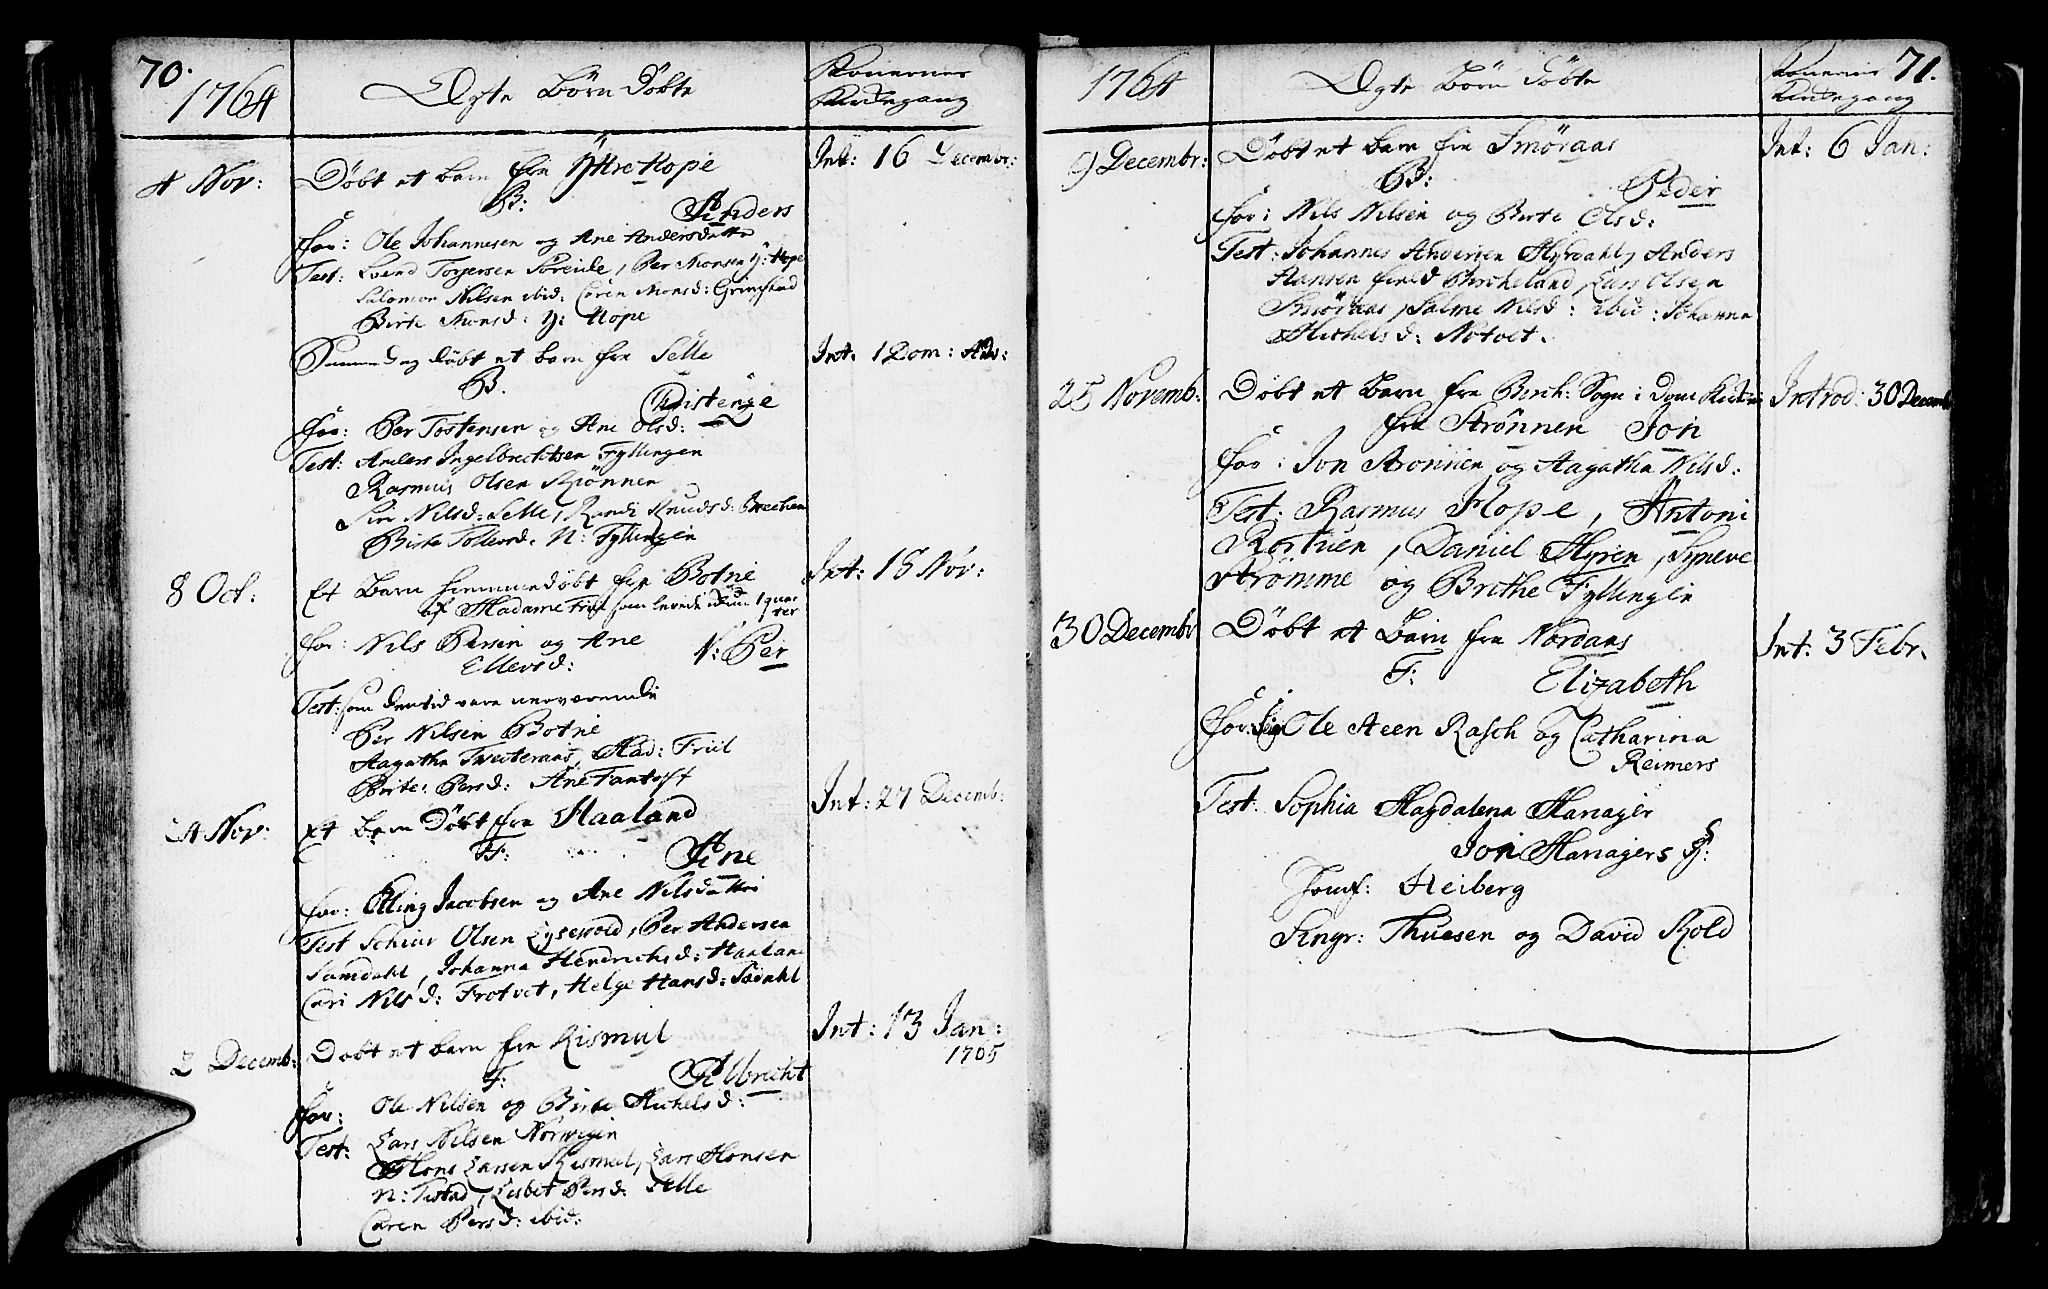 70.
1764
Ægte Børn Döbte
Konernes
Kirkegang
4 Nov:
Döbt et barn fra Ÿttre Hope
B:
Anders
For: Ole Johannesen og Ane Andersdatter
Test: Svend Torgersen Söreide, Per Monsen Ÿ: Hope
Salomon Nilsen ibid: Caren Monsd: Grimstad
Birte Monsd: Ÿ: Hope
Int: 16 Decembr:
Samme dag döbt et barn fra Selle
B.
For: Per Tostensen og Ane Olsd:
Test: Anders Ingelbrechtsen Fyllingen
Rasmus Olsen Skiönnen
Siri Nilsd: Selle, Randi Knudsd:
Birte Tollevsd. N: Fyllingen
Int: 1 Dom: Adv:
8 Oct:
Et Barn hiemmedöbt fra Botne
af Madame Friil som levede ikkun 1 quar
ter
for: Nils Persen og Ane
Ellevsd:
N: Per
Test: som den tid vare nerværende
Per Nilsen Botne
Aagatha Tveiteraas, Mad: Friil
Birte Persd: Ane Fantoft
Int: 15 Nov:
Nov:
Et barn Döbt fra Haaland
F:
Ane
for: Elling Jacobsen og Ane Nilsdatter
Test Olsen Lysevold, Per Andersen
Samdahl, Johanna Hendrichsd: Haaland
Cari Nilsd: Frotvet, Helge Hansd: Sædahl
Int: 27 Decemb:
2 Decemb:
Döbt et barn fra Rismul
F:
Albrecht
For: Ole Nilsen og Birte Michelsd:
Test: Lars Nilsen Norvegin
Mons Larsen Rismul, Lars Monsen
N: Tistad, Lisbet Persd: Selle
Caren Persd: ibid:
Int: 13 Jan:
1765
71.
1764
Ægte Börn Döbte
Konernes
Kirkegang
9 Decembr:
Döbt et barn fra Smöraas
B:
Peder
For: Nils Nilsen og Birte Olsd:
Test: Johannes Andersen Myrdahl, Anders
Hansen Birkeland, Lars Olsen
Smöraas, Salme Nilsd: ibid: Johanna
Michelsd: Notvet.
Int: 6 Jan:
25 Novemb:
Döbt et Barn fra Birch: Sogn i Dom Kirken
fra Strönnen Jon
For: Jon Strönnen og Aagatha Nilsd:
Test: Rasmus Hope, Antoni
Daniel Myren, Syneve
Strömme og Brithe Fyllingen
Introd: 30 Decemb
30 Decembr
Döbt et Barn fra Nordaas
F:
Elizabeth
For: Sigr Ole Meen Rasch og Catharina
Reimers
Test: Sophia Magdalena Manager
Jon Managers
Jomf: Heiberg
Singr: Thuesen og David Rold
Int: 3 Febr.